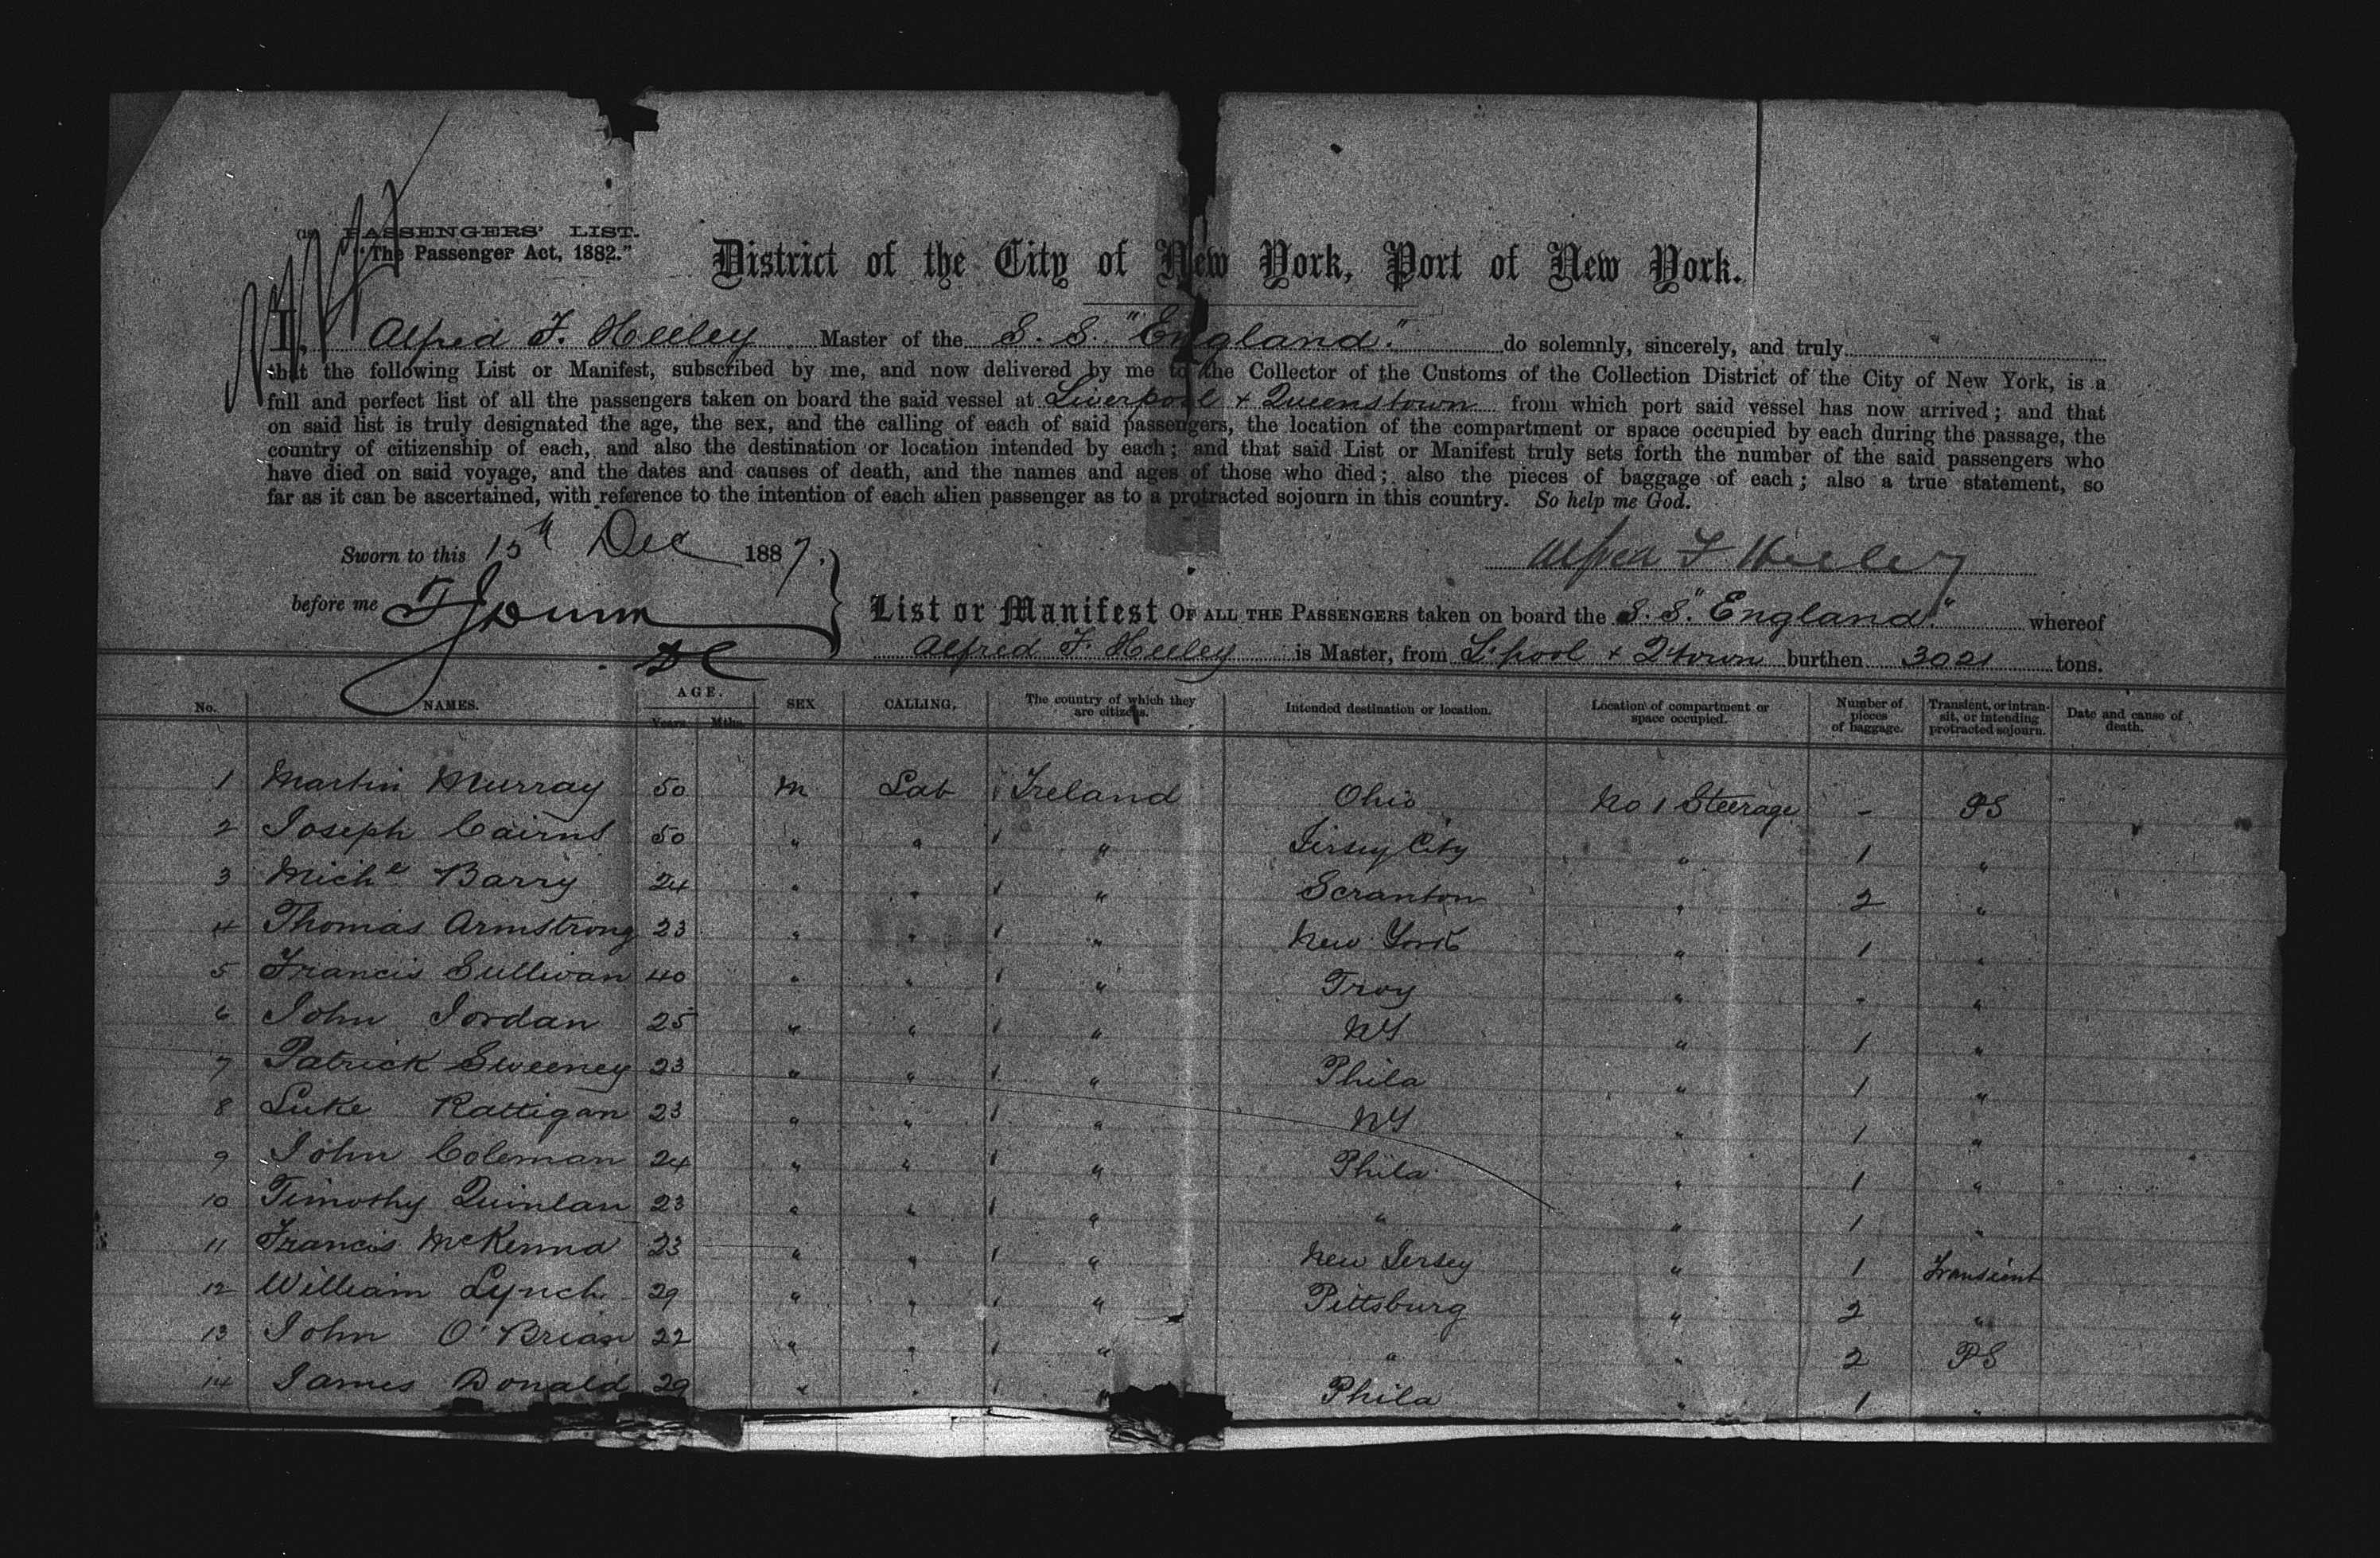 PASSENGERS' LIST.
"The Passenger Act, 1882."
District of the City of New York, Port of New York.
I, Alfred F. Heeley Master of the S. S. "England." do solemnly, sincerely, and truly "
that the following List or Manifest, subscribed by me, and now delivered by me to the Collector of the Customs of the Collection District of the City of New York, is a
full and perfect list of all the passengers taken on board the said vessel at Liverpool + Queenstown from which port said vessel has now arrived; and that
on said list is truly designated the age, the sex, and the calling of each of said passengers, the location of the compartment or space occupied by each during the passage, the
country of citizenship of each, and also the destination or location intended by each; and that said List or Manifest truly sets forth the number of the said passengers who
have died on said voyage, and the dates and causes of death, and the names and ages of those who died; also the pieces of baggage of each; also a true statement, so
far as it can be ascertained, with reference to the intention of each alien passenger as to a protracted sojourn in this country. So help me God.
Sworn to this 15th Dec 1887.
Alfred F Heeley
before me
List or Manifest OF ALL THE PASSENGERS taken on board the S. S. "England." whereof
Alfred F. Heeley is Master, from L'pool + Q'town burthen 3021 tons.
No. NAMES. AGE. Years. Mths. SEX CALLING. The country of which they are citizens. Intended destination or location. Location of compartment or space occupied. Number of pieces of baggage. Transient, or in transit, or intending protracted sojourn. Date and cause of death.
1 Martin Murray 50 M Lab Ireland Ohio No 1 Steerage - PS
2 Joseph Cairns 50 " " " Jersey City " 1 "
3 Michl Barry 24 " " " Scranton " 2 "
4 Thomas Armstrong 23 " " " New York " 1 "
5 Francis Sullivan 40 " " " Troy " - "
6 John Jordan 25 " " " NY " 1 "
7 Patrick Sweeney 23 " " " Phila " 1 "
8 Luke Rattigan 23 " " " NY " 1 "
9 John Coleman 24 " " " Phila " 1 "
10 Timothy Quinlan 23 " " " " " 1 "
11 Francis McKenna 23 " " " New Jersey " 1 Transient
12 William Lynch 29 " " " Pittsburg " 2 "
13 John O'Brian 22 " " " " " 2 PS
14 James Donald 29 " " " Phila " 1 "